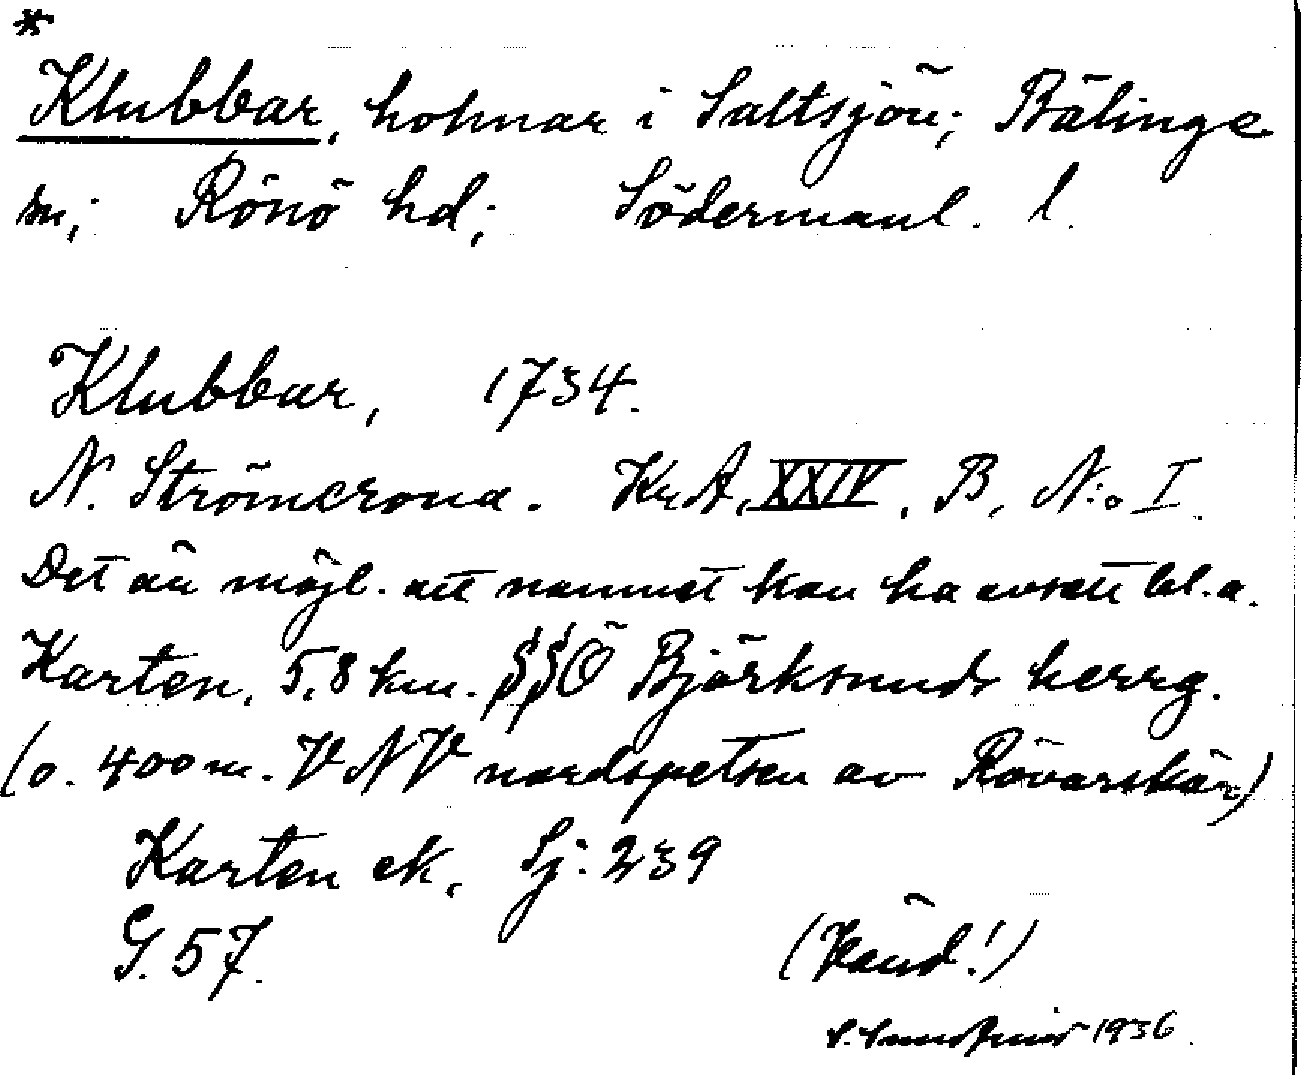 *
Klubbar, holmar i Saltsjön; Bälinge
sn; Rönö hd; Södermanl. l.
Klubbar, 1734.
N. Strömcrona. Kr.A. XXIV. B. N:o I.
Det är möjl. att namnet kan ha avsett bl.a.
Karten, 5,8 km. SSÖ Björksunds herrg.
(o. 400 m. VNV nordspetsen av Rövarskär)
Karten ek. Sj: 239
G. 57.
(Vänd!)
1936